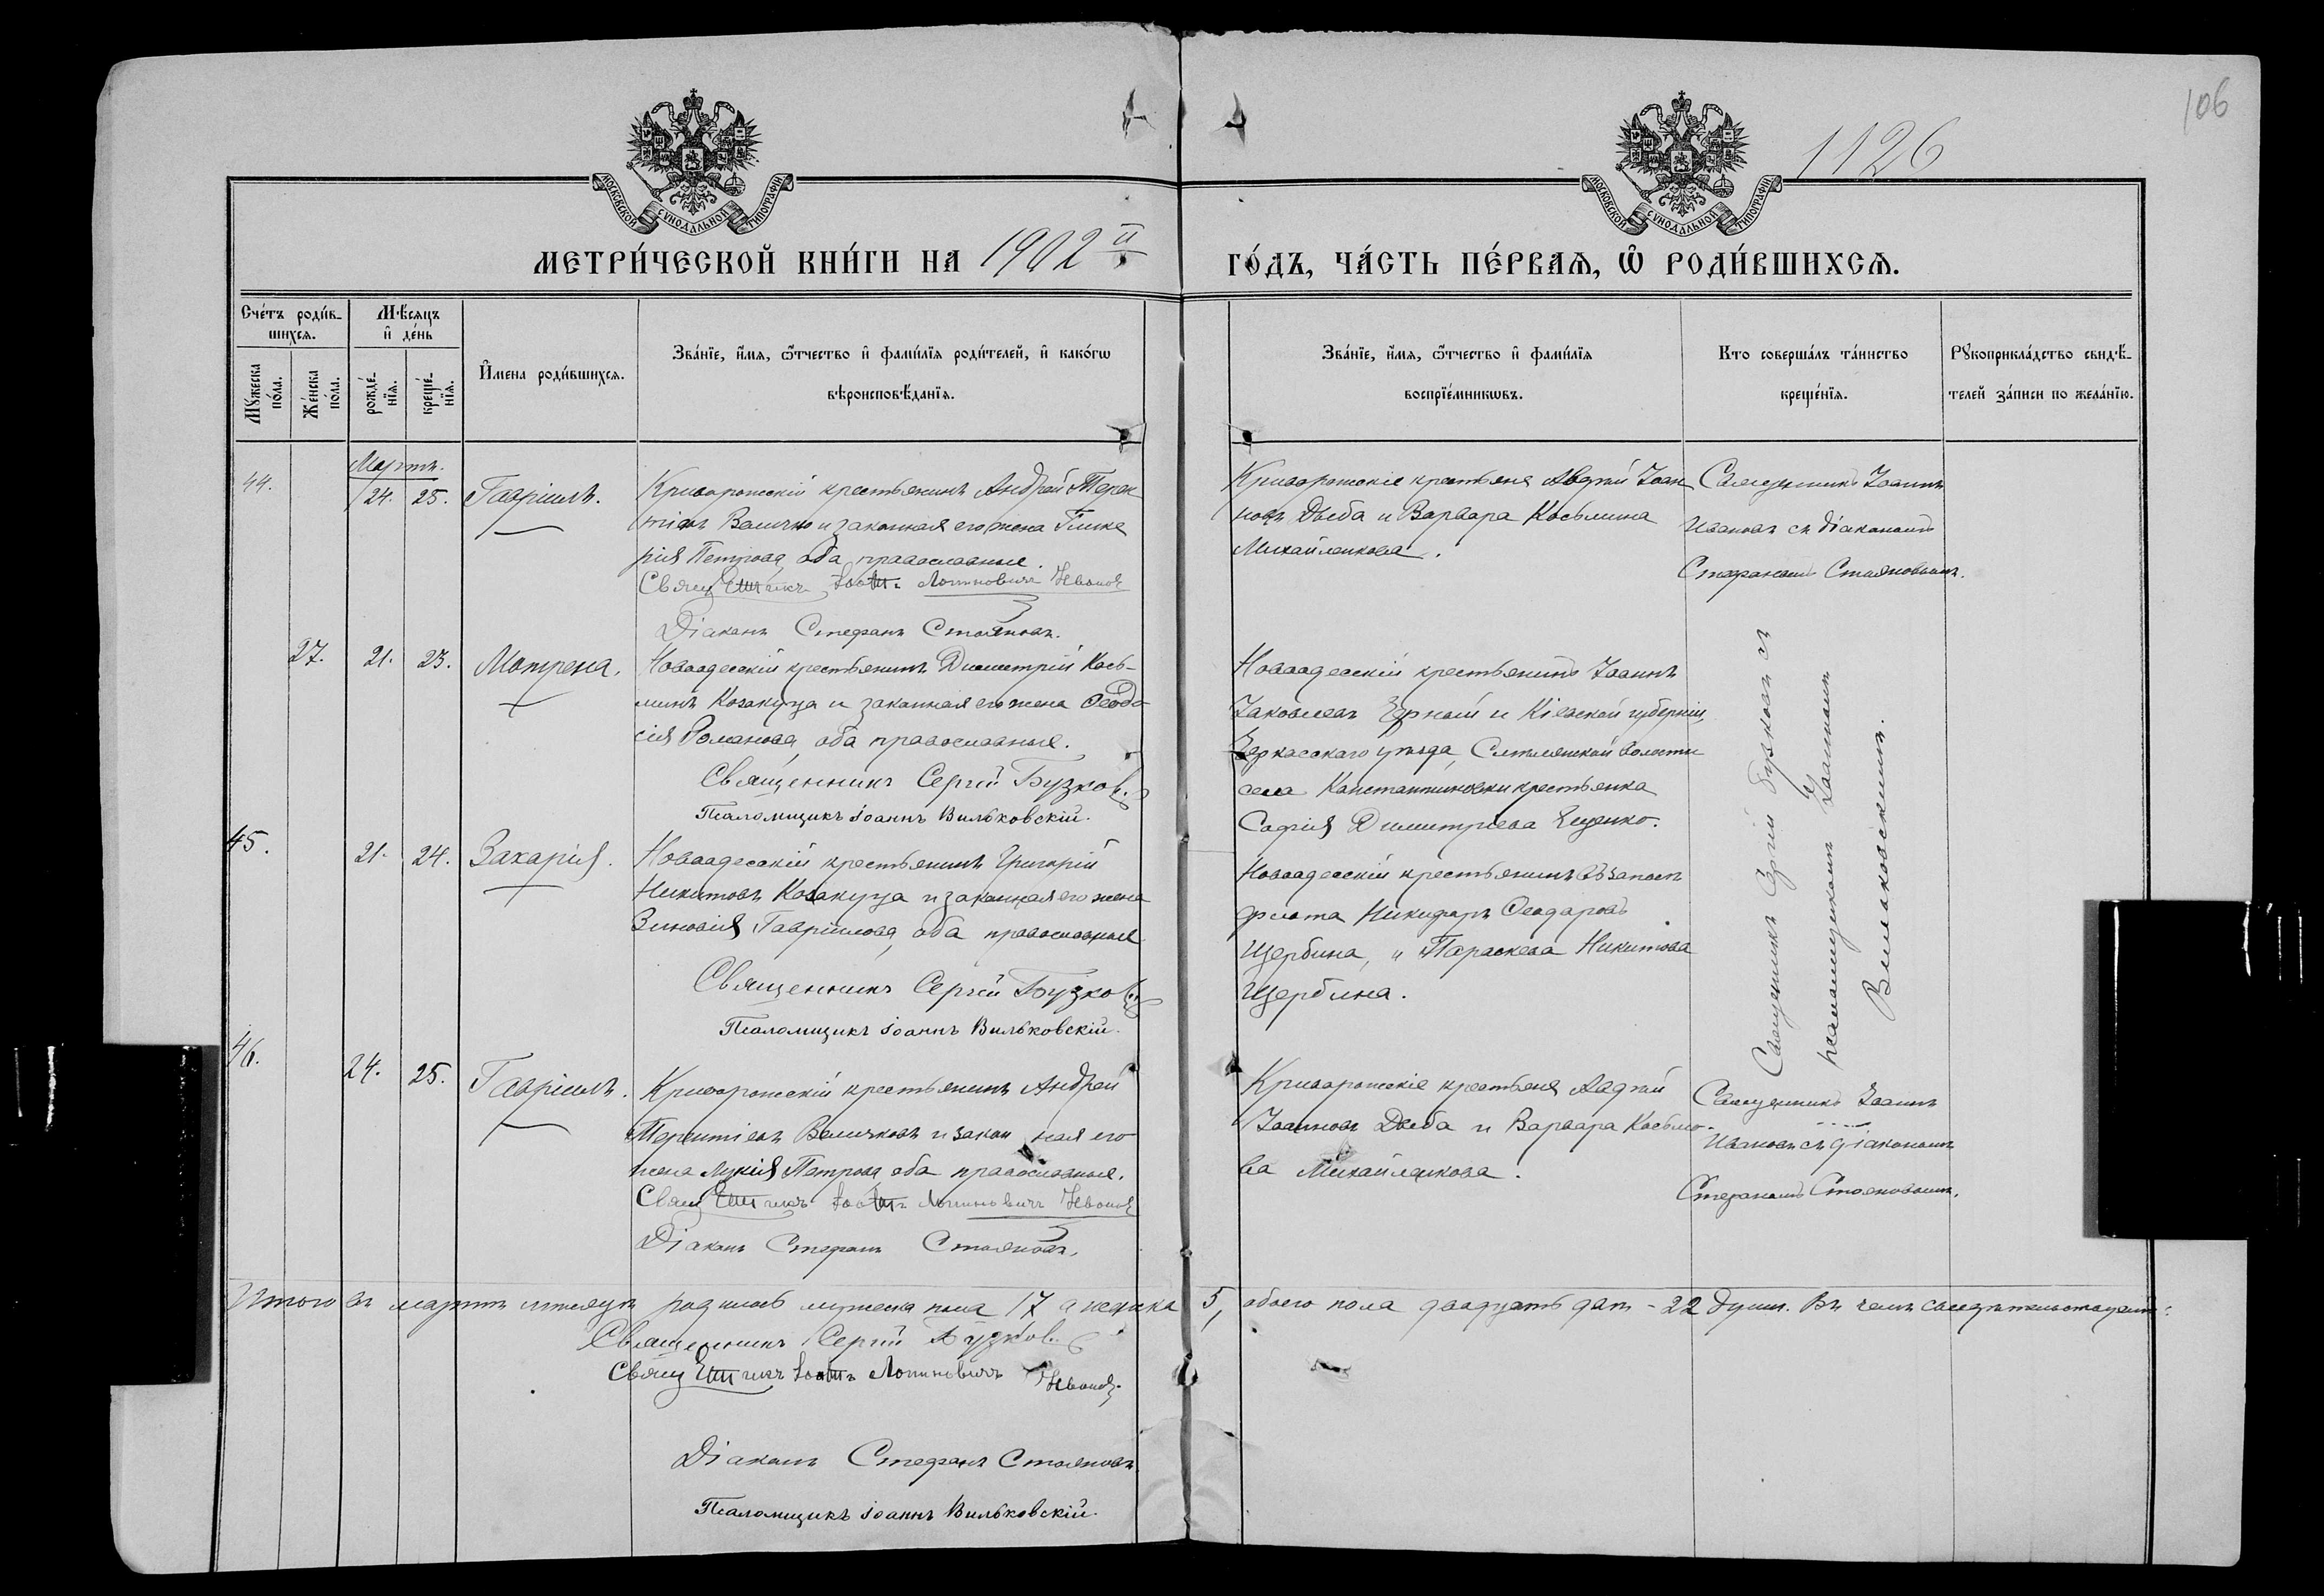 106
1126
МОСКОВСКОЙ СѴНОДАЛЬНОЙ ТИПОГРАФІИ
МОСКОВСКОЙ СѴНОДАЛЬНОЙ ТИПОГРАФІИ
МЕТРИ́ЧЕСКОЙ КНИ́ГИ НА 1902й
ГО́ДЪ, ЧА́СТЬ ПЕ́РВАѦ, Ѡ РОДИ́ВШИХСѦ.
Сче́тъ роди́в-
шихсѧ.
Мѣ́сяцъ
и҆ де́нь
Мꙋ́жеска
по́ла.
Же́нска
по́ла.
рожде́-
нїѧ.
креще́-
нїѧ.
И҆мена роди́вшихсѧ.
Зва́нїе, и҆́мѧ, ѻ҆́тчество и҆ фами́лїѧ роди́телей, и҆ како́гѡ
вѣроисповѣ́данїѧ.
Зва́нїе, и҆́мѧ, ѻ҆́тчество и҆ фами́лїѧ
воспрїе́мникѡвъ.
Кто соверша́лъ та́инство
креще́нїѧ.
Рꙋкоприкла́дство свидѣ́-
телей за́писи по жела́нїю.
Мартъ.
44. 24. 25. Гавріилъ.
Криворожскій крестьянинъ Андрей Терен
тіевъ Величко и законная его жена Глике
рія Петрова, оба православные.
Священникъ Іоаннъ Логиновичъ Ивановъ
Діаконъ Стефанъ Стояновъ.
Криворожскіе крестьяне Авдѣй Іоан
новъ Дзеба и Варвара Косьмина
Михайленкова.
Священникъ Іоаннъ
Ивановъ съ діакономъ
Стефаномъ Стояновымъ.
27. 21. 23. Матрена.
Новоодесскій крестьянинъ Димитрій Кось-
минъ Козакуца и законная его жена Ѳеодо
сія Романова, оба православные.
Священникъ Сергій Бузковъ.
Псаломщикъ Іоаннъ Вильковскій.
Новоодесскій крестьянинъ Іоаннъ
Іаковлевъ Черный и Кіевской губерніи,
Черкасскаго уѣзда, Смѣлянской волости
села Константиновки крестьянка
Софія Димитріева Ященко.
Священникъ Сергій Бузковъ съ
псаломщикомъ Іоанномъ
Вильковскимъ.
45. 21. 24. Захарія.
Новоодесскій крестьянинъ Григорій
Никитовъ Козакуца и законная его жена
Зиновія Гавріилова, оба православные
Священникъ Сергій Бузковъ
Псаломщикъ Іоаннъ Вильковскій.
Новоодесскій крестьянинъ въ запасѣ
флота Никифоръ Ѳеодоровъ
Щербина, и Параскева Никитова
Щербина.
46. 24. 25. Гавріилъ.
Криворожскій крестьянинъ Андрей
Терентіевъ Величковъ и закон ная его
жена Лукія Петрова, оба православные.
Священникъ Іоаннъ Логиновичъ Ивановъ
Діаконъ Стефанъ Стояновъ.
Криворожскіе крестьяне Авдѣй
Іоанновъ Дзеба и Варвара Косьмо-
ва Михайленкова.
Священникъ Іоаннъ
Ивановъ съ діакономъ
Стефаномъ Стояновымъ.
Итого въ мартѣ мѣсяцѣ родилось мужеска пола 17 а женска 5, обоего пола двадцать двѣ - 22 души. Въ чемъ свидѣтельствуемъ:
Священникъ Сергій Бузковъ
Священникъ Іоаннъ Логиновичъ Ивановъ.
Діаконъ Стефанъ Стояновъ
Псаломщикъ Іоаннъ Вильковскій.